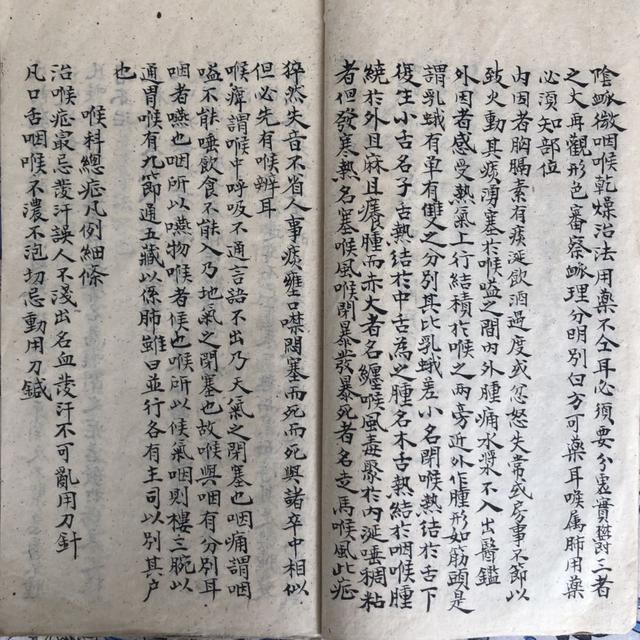 陰脈微咽喉乾燥治法用藥不仝耳必須要分虛實辯三者
之大耳觀形色審察脈理分明別曰方可藥耳喉属肺用藥
必須知部位
內因者胸膈素有痰涎飲酒過度或忿怒失常或房事不節以
致火動其痰湧塞於喉嗌之間內外腫痛水漿不入出醫鑑
外因者感受熱氣上行結積於喉之両旁近外作腫形如筋頭是
謂乳蛾有单有雙之分別其比乳蛾差小名閉喉熱結於舌下
復生小舌名子舌熱結於中舌為之腫名木舌熱結於咽喉腫
繞於外且麻且癢腫而赤大者名纏喉風毒聚於內涎唾稠粘
者但發寒熱名塞喉風喉閉暴發暴死者名走馬喉風此症
猝然失音不省人事痰壅口噤悶塞而死而死與諸卒中相似
但必先有喉辨耳
喉痺謂喉中呼吸不通言語不出乃天氣之閉塞也咽痛謂咽
嗌不能唾飲食不能入乃地氣之閉塞也故喉與咽有分別耳
咽者嚥也咽所以嚥物喉者候也喉所以候氣咽則樓三腕以
通胃喉有九節通五藏以係肺雖曰並行各有主司以別其户
也
喉科總症凡例細條
治喉症最忌發汗誤人不淺出名血發汗不可亂用刀針
凡口舌咽喉不濃不泡切忌動用刀鍼